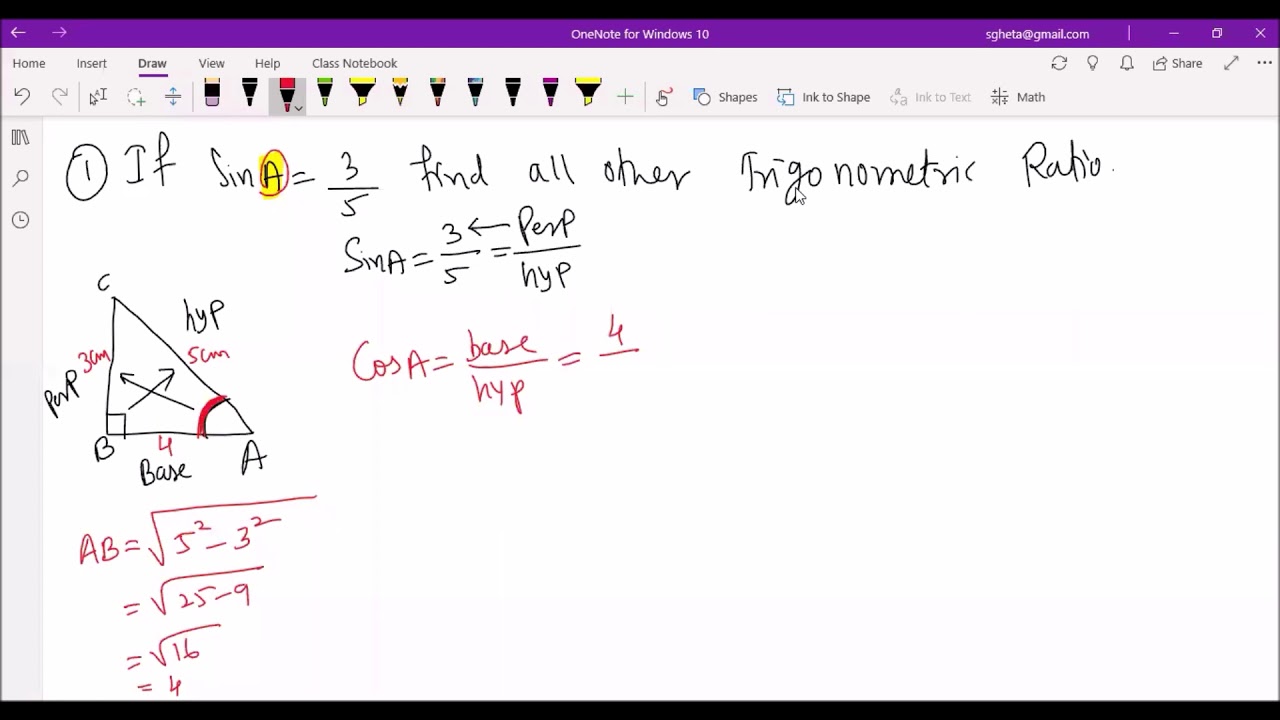 OneNote for Windows 10
sgheta@gmail.com
Home Insert Draw View Help Class Notebook Share
Shapes Ink to Shape Ink to Text Math
① If SinA = 3/5 find all other Trigonometric Ratio.
SinA = 3/5 ← = Perp/hyp
C
hyp
3cm 5cm
Perp
CosA = base/hyp = 4
B 4 A
Base
AB = √5² - 3²
= √25-9
= √16
= 4